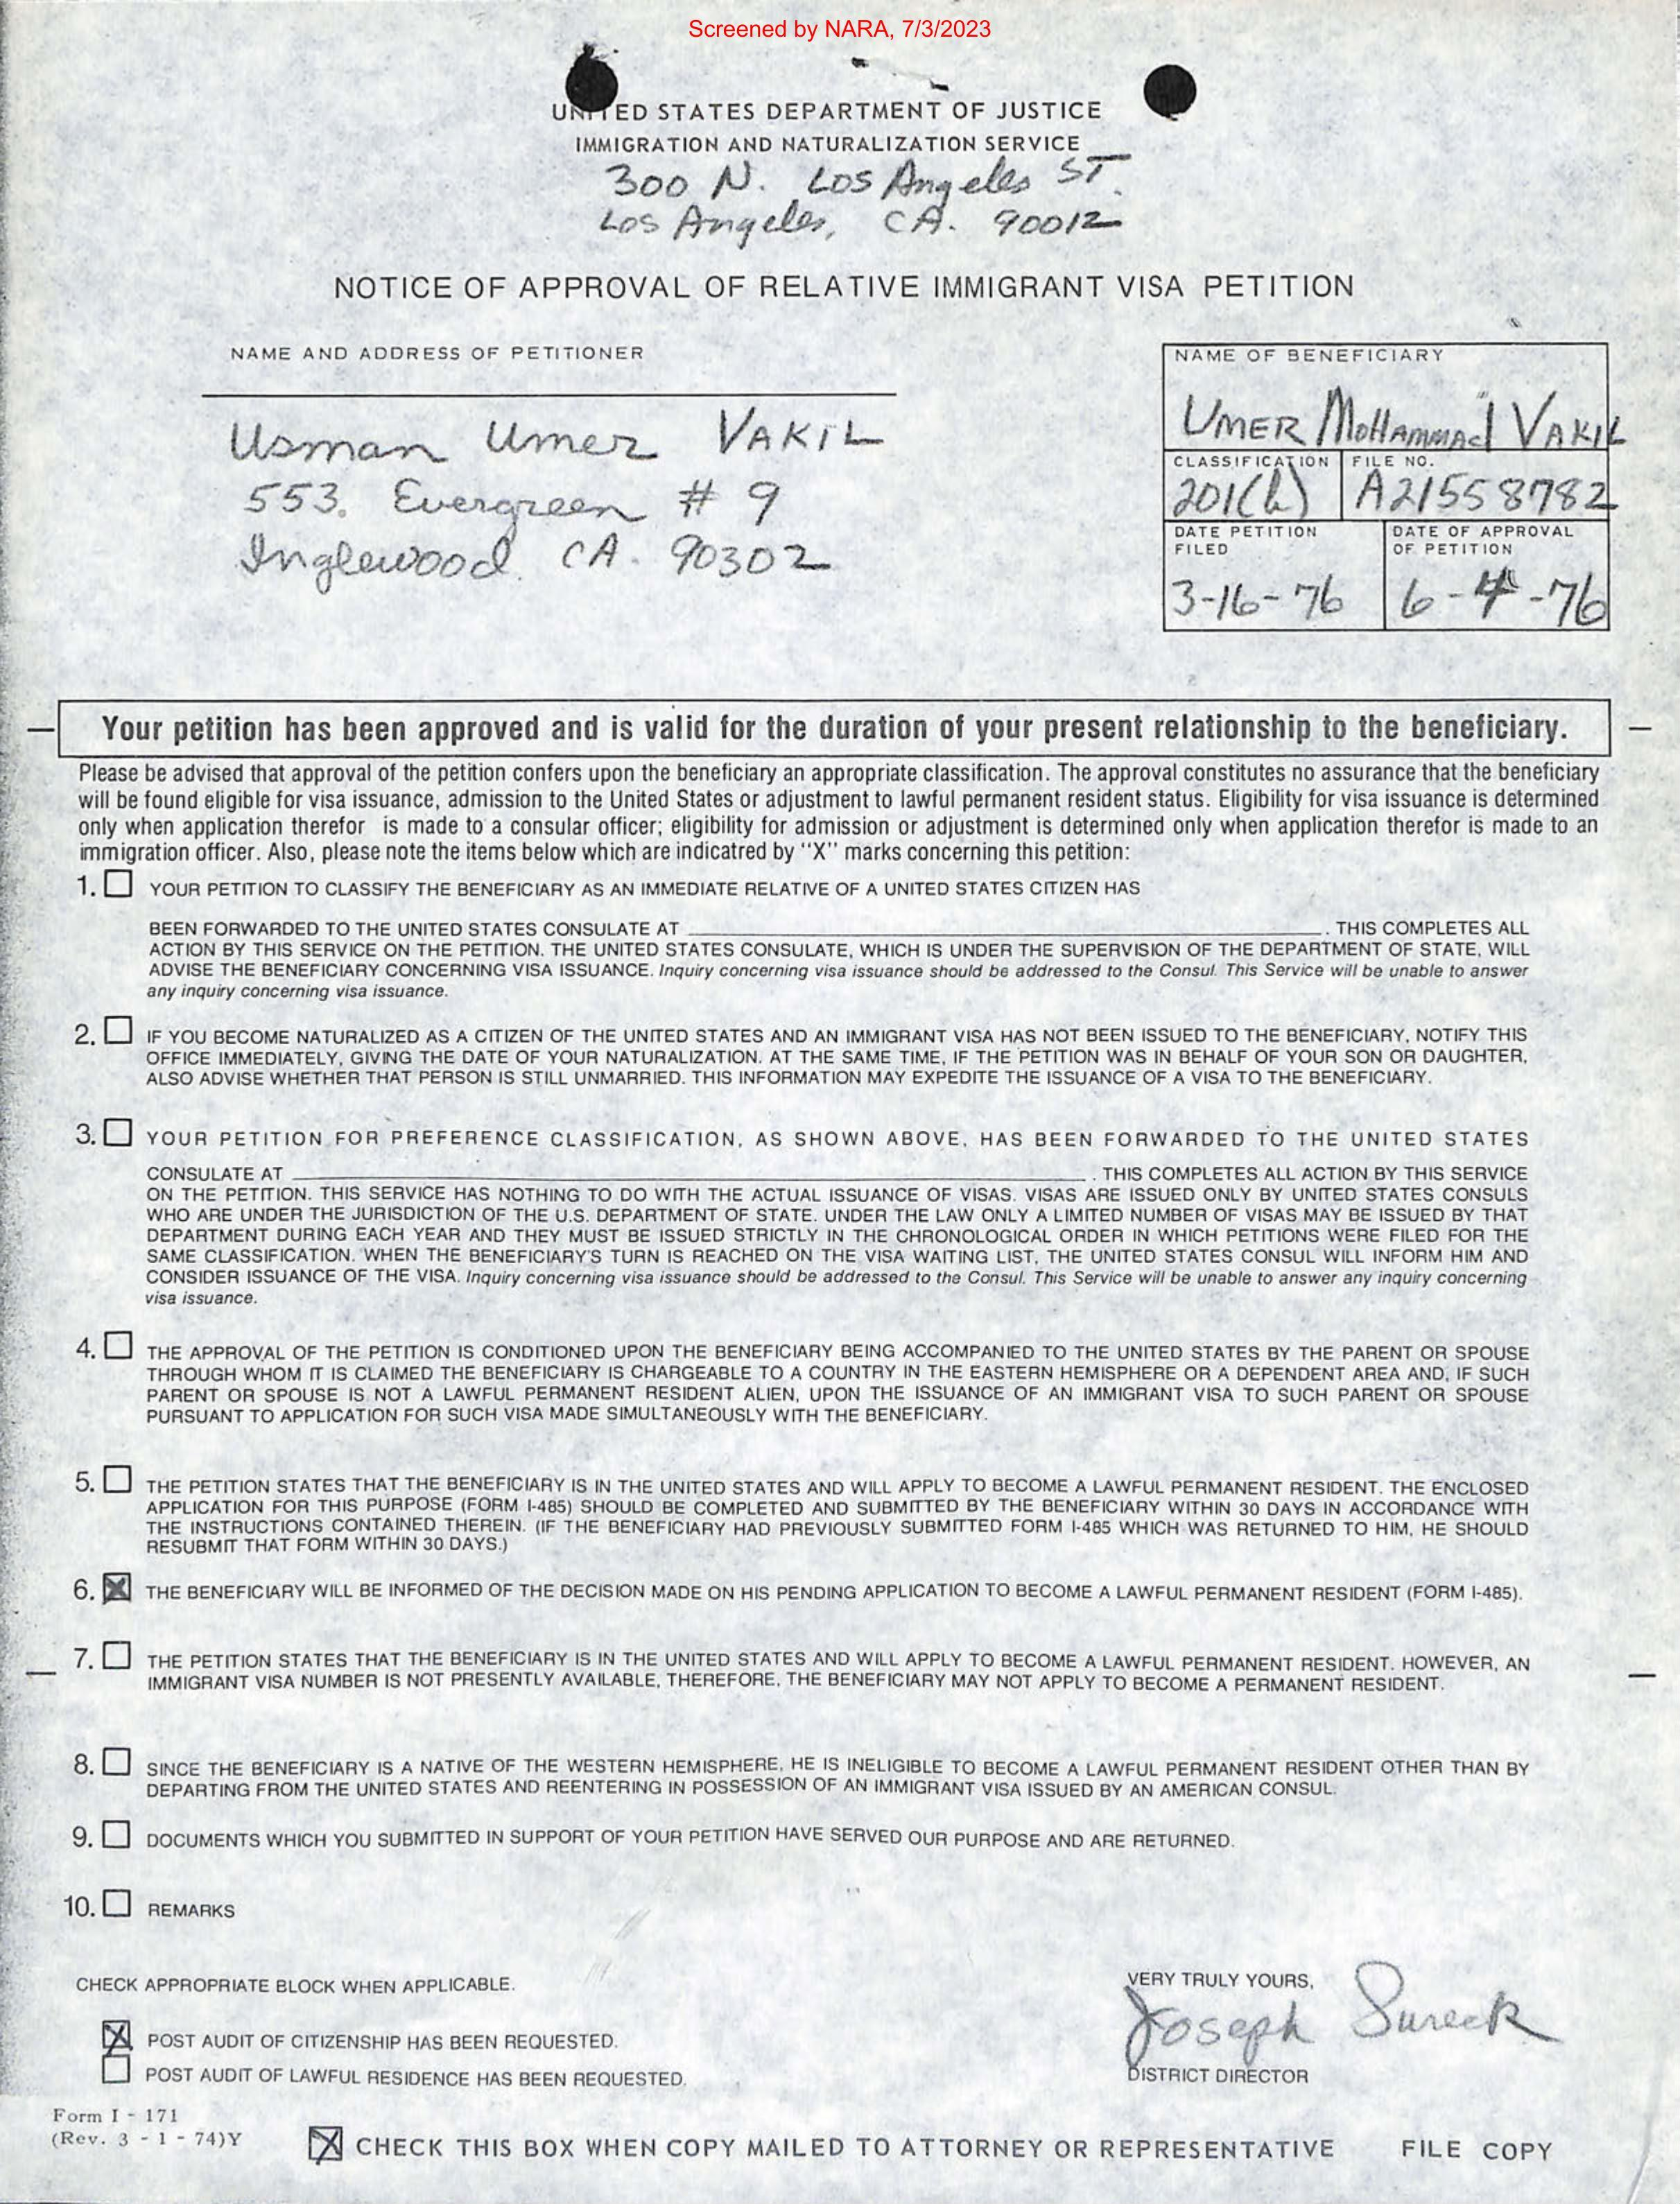 Screened by NARA, 7/3/2023
UNITED STATES DEPARTMENT OF JUSTICE
IMMIGRATION AND NATURALIZATION SERVICE
300 N. Los Angeles ST.
Los Angeles, CA. 90012
NOTICE OF APPROVAL OF RELATIVE IMMIGRANT VISA PETITION
NAME AND ADDRESS OF PETITIONER
Usman Umer VAKIL
553. Evergreen # 9
Inglewood. CA. 90302
NAME OF BENEFICIARY
UMER MOHAMMAd VAKIL
CLASSIFICATION
201(b)
FILE NO.
A21558782
DATE PETITION
FILED
3-16-76
DATE OF APPROVAL
OF PETITION
6-4-76
Your petition has been approved and is valid for the duration of your present relationship to the beneficiary.
Please be advised that approval of the petition confers upon the beneficiary an appropriate classification. The approval constitutes no assurance that the beneficiary
will be found eligible for visa issuance, admission to the United States or adjustment to lawful permanent resident status. Eligibility for visa issuance is determined
only when application therefor is made to a consular officer; eligibility for admission or adjustment is determined only when application therefor is made to an
immigration officer. Also, please note the items below which are indicatred by "X" marks concerning this petition:
1. YOUR PETITION TO CLASSIFY THE BENEFICIARY AS AN IMMEDIATE RELATIVE OF A UNITED STATES CITIZEN HAS
BEEN FORWARDED TO THE UNITED STATES CONSULATE AT . THIS COMPLETES ALL
ACTION BY THIS SERVICE ON THE PETITION. THE UNITED STATES CONSULATE, WHICH IS UNDER THE SUPERVISION OF THE DEPARTMENT OF STATE, WILL
ADVISE THE BENEFICIARY CONCERNING VISA ISSUANCE. Inquiry concerning visa issuance should be addressed to the Consul. This Service will be unable to answer
any inquiry concerning visa issuance.
2. IF YOU BECOME NATURALIZED AS A CITIZEN OF THE UNITED STATES AND AN IMMIGRANT VISA HAS NOT BEEN ISSUED TO THE BENEFICIARY, NOTIFY THIS
OFFICE IMMEDIATELY, GIVING THE DATE OF YOUR NATURALIZATION. AT THE SAME TIME, IF THE PETITION WAS IN BEHALF OF YOUR SON OR DAUGHTER,
ALSO ADVISE WHETHER THAT PERSON IS STILL UNMARRIED. THIS INFORMATION MAY EXPEDITE THE ISSUANCE OF A VISA TO THE BENEFICIARY.
3. YOUR PETITION FOR PREFERENCE CLASSIFICATION, AS SHOWN ABOVE, HAS BEEN FORWARDED TO THE UNITED STATES
CONSULATE AT . THIS COMPLETES ALL ACTION BY THIS SERVICE
ON THE PETITION. THIS SERVICE HAS NOTHING TO DO WITH THE ACTUAL ISSUANCE OF VISAS. VISAS ARE ISSUED ONLY BY UNITED STATES CONSULS
WHO ARE UNDER THE JURISDICTION OF THE U.S. DEPARTMENT OF STATE. UNDER THE LAW ONLY A LIMITED NUMBER OF VISAS MAY BE ISSUED BY THAT
DEPARTMENT DURING EACH YEAR AND THEY MUST BE ISSUED STRICTLY IN THE CHRONOLOGICAL ORDER IN WHICH PETITIONS WERE FILED FOR THE
SAME CLASSIFICATION. WHEN THE BENEFICIARY'S TURN IS REACHED ON THE VISA WAITING LIST, THE UNITED STATES CONSUL WILL INFORM HIM AND
CONSIDER ISSUANCE OF THE VISA. Inquiry concerning visa issuance should be addressed to the Consul. This Service will be unable to answer any inquiry concerning
visa issuance.
4. THE APPROVAL OF THE PETITION IS CONDITIONED UPON THE BENEFICIARY BEING ACCOMPANIED TO THE UNITED STATES BY THE PARENT OR SPOUSE
THROUGH WHOM IT IS CLAIMED THE BENEFICIARY IS CHARGEABLE TO A COUNTRY IN THE EASTERN HEMISPHERE OR A DEPENDENT AREA AND, IF SUCH
PARENT OR SPOUSE IS NOT A LAWFUL PERMANENT RESIDENT ALIEN, UPON THE ISSUANCE OF AN IMMIGRANT VISA TO SUCH PARENT OR SPOUSE
PURSUANT TO APPLICATION FOR SUCH VISA MADE SIMULTANEOUSLY WITH THE BENEFICIARY.
5. THE PETITION STATES THAT THE BENEFICIARY IS IN THE UNITED STATES AND WILL APPLY TO BECOME A LAWFUL PERMANENT RESIDENT. THE ENCLOSED
APPLICATION FOR THIS PURPOSE (FORM I-485) SHOULD BE COMPLETED AND SUBMITTED BY THE BENEFICIARY WITHIN 30 DAYS IN ACCORDANCE WITH
THE INSTRUCTIONS CONTAINED THEREIN. (IF THE BENEFICIARY HAD PREVIOUSLY SUBMITTED FORM I-485 WHICH WAS RETURNED TO HIM, HE SHOULD
RESUBMIT THAT FORM WITHIN 30 DAYS.)
6. X THE BENEFICIARY WILL BE INFORMED OF THE DECISION MADE ON HIS PENDING APPLICATION TO BECOME A LAWFUL PERMANENT RESIDENT (FORM I-485).
7. THE PETITION STATES THAT THE BENEFICIARY IS IN THE UNITED STATES AND WILL APPLY TO BECOME A LAWFUL PERMANENT RESIDENT. HOWEVER, AN
IMMIGRANT VISA NUMBER IS NOT PRESENTLY AVAILABLE, THEREFORE, THE BENEFICIARY MAY NOT APPLY TO BECOME A PERMANENT RESIDENT.
8. SINCE THE BENEFICIARY IS A NATIVE OF THE WESTERN HEMISPHERE, HE IS INELIGIBLE TO BECOME A LAWFUL PERMANENT RESIDENT OTHER THAN BY
DEPARTING FROM THE UNITED STATES AND REENTERING IN POSSESSION OF AN IMMIGRANT VISA ISSUED BY AN AMERICAN CONSUL.
9. DOCUMENTS WHICH YOU SUBMITTED IN SUPPORT OF YOUR PETITION HAVE SERVED OUR PURPOSE AND ARE RETURNED.
10. REMARKS
CHECK APPROPRIATE BLOCK WHEN APPLICABLE.
X POST AUDIT OF CITIZENSHIP HAS BEEN REQUESTED.
POST AUDIT OF LAWFUL RESIDENCE HAS BEEN REQUESTED.
VERY TRULY YOURS,
Joseph Sureck
DISTRICT DIRECTOR
Form I - 171
(Rev. 3 - 1 - 74)Y
X CHECK THIS BOX WHEN COPY MAILED TO ATTORNEY OR REPRESENTATIVE FILE COPY